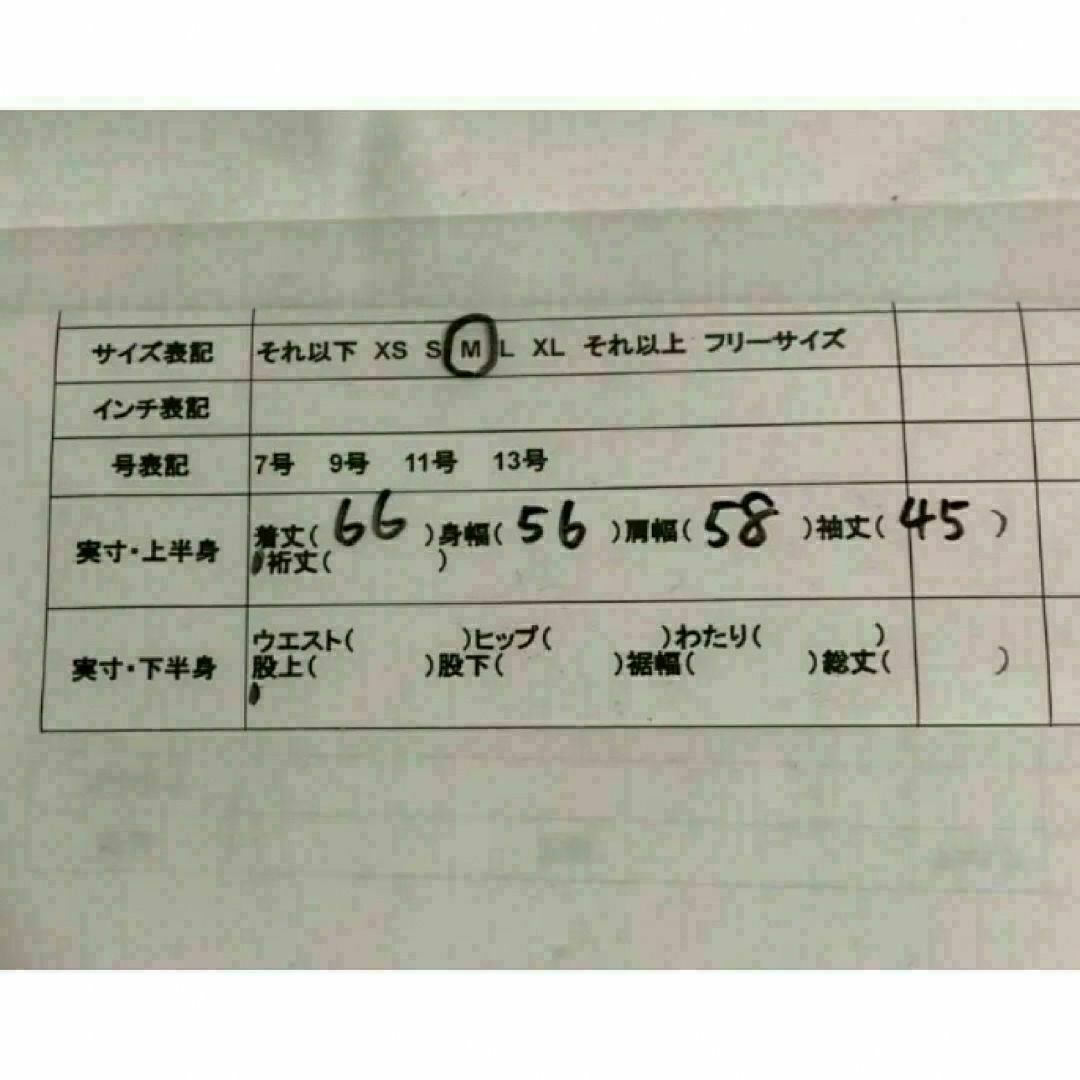 サイズ表記 それ以下 XS S M L XL それ以上 フリーサイズ
インチ表記
号表記 7号 9号 11号 13号
実寸・上半身 着丈( 66 )身幅( 56 )肩幅( 58 )袖丈( 45 )
裄丈( )
実寸・下半身 ウエスト( )ヒップ( )わたり( )
股上( )股下( )裾幅( )総丈( )